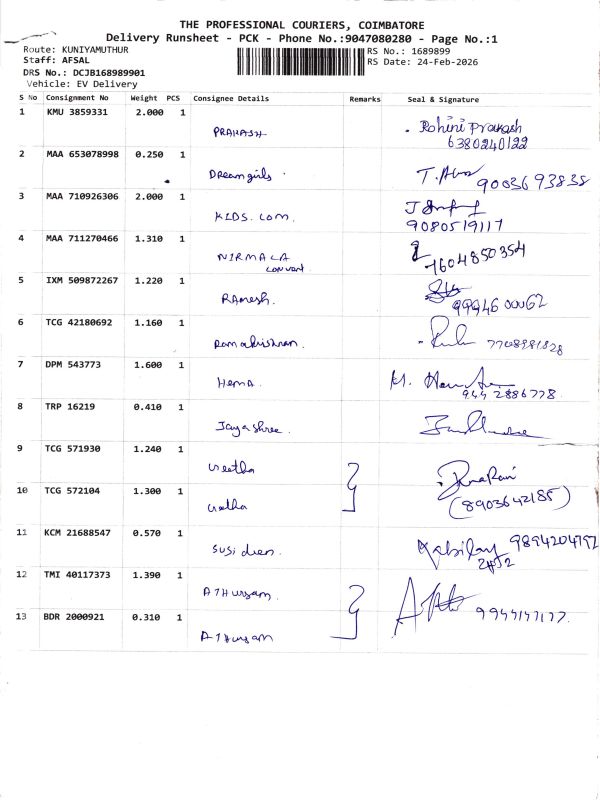 THE PROFESSIONAL COURIERS, COIMBATORE
Delivery Runsheet - PCK - Phone No.:9047080280 - Page No.:1
Route: KUNIYAMUTHUR
Staff: AFSAL
DRS No.: DCJB168989901
Vehicle: EV Delivery
RS No.: 1689899
RS Date: 24-Feb-2026
S No Consignment No Weight PCS Consignee Details Remarks Seal & Signature
1 KMU 3859331 2.000 1 PRAKASH Rohini Prakash
6380240122
2 MAA 653078998 0.250 1 Dreamgirls. 9003693838
3 MAA 710926306 2.000 1 KIDS. com.
9080519117
4 MAA 711270466 1.310 1 NIRMALA
convent. 7604850354
5 IXM 509872267 1.220 1 Ramesh.
9994600062
6 TCG 42180692 1.160 1 Ramakrishnan. 7708981828
7 DPM 543773 1.600 1 Hema.
944 2886778.
8 TRP 16219 0.410 1 Jayashree.
9 TCG 571930 1.240 1 Geetha
10 TCG 572104 1.300 1 Geetha (8903642185)
11 KCM 21688547 0.570 1 9894204792
12 TMI 40117373 1.390 1
13 BDR 2000921 0.310 1 9944147177.